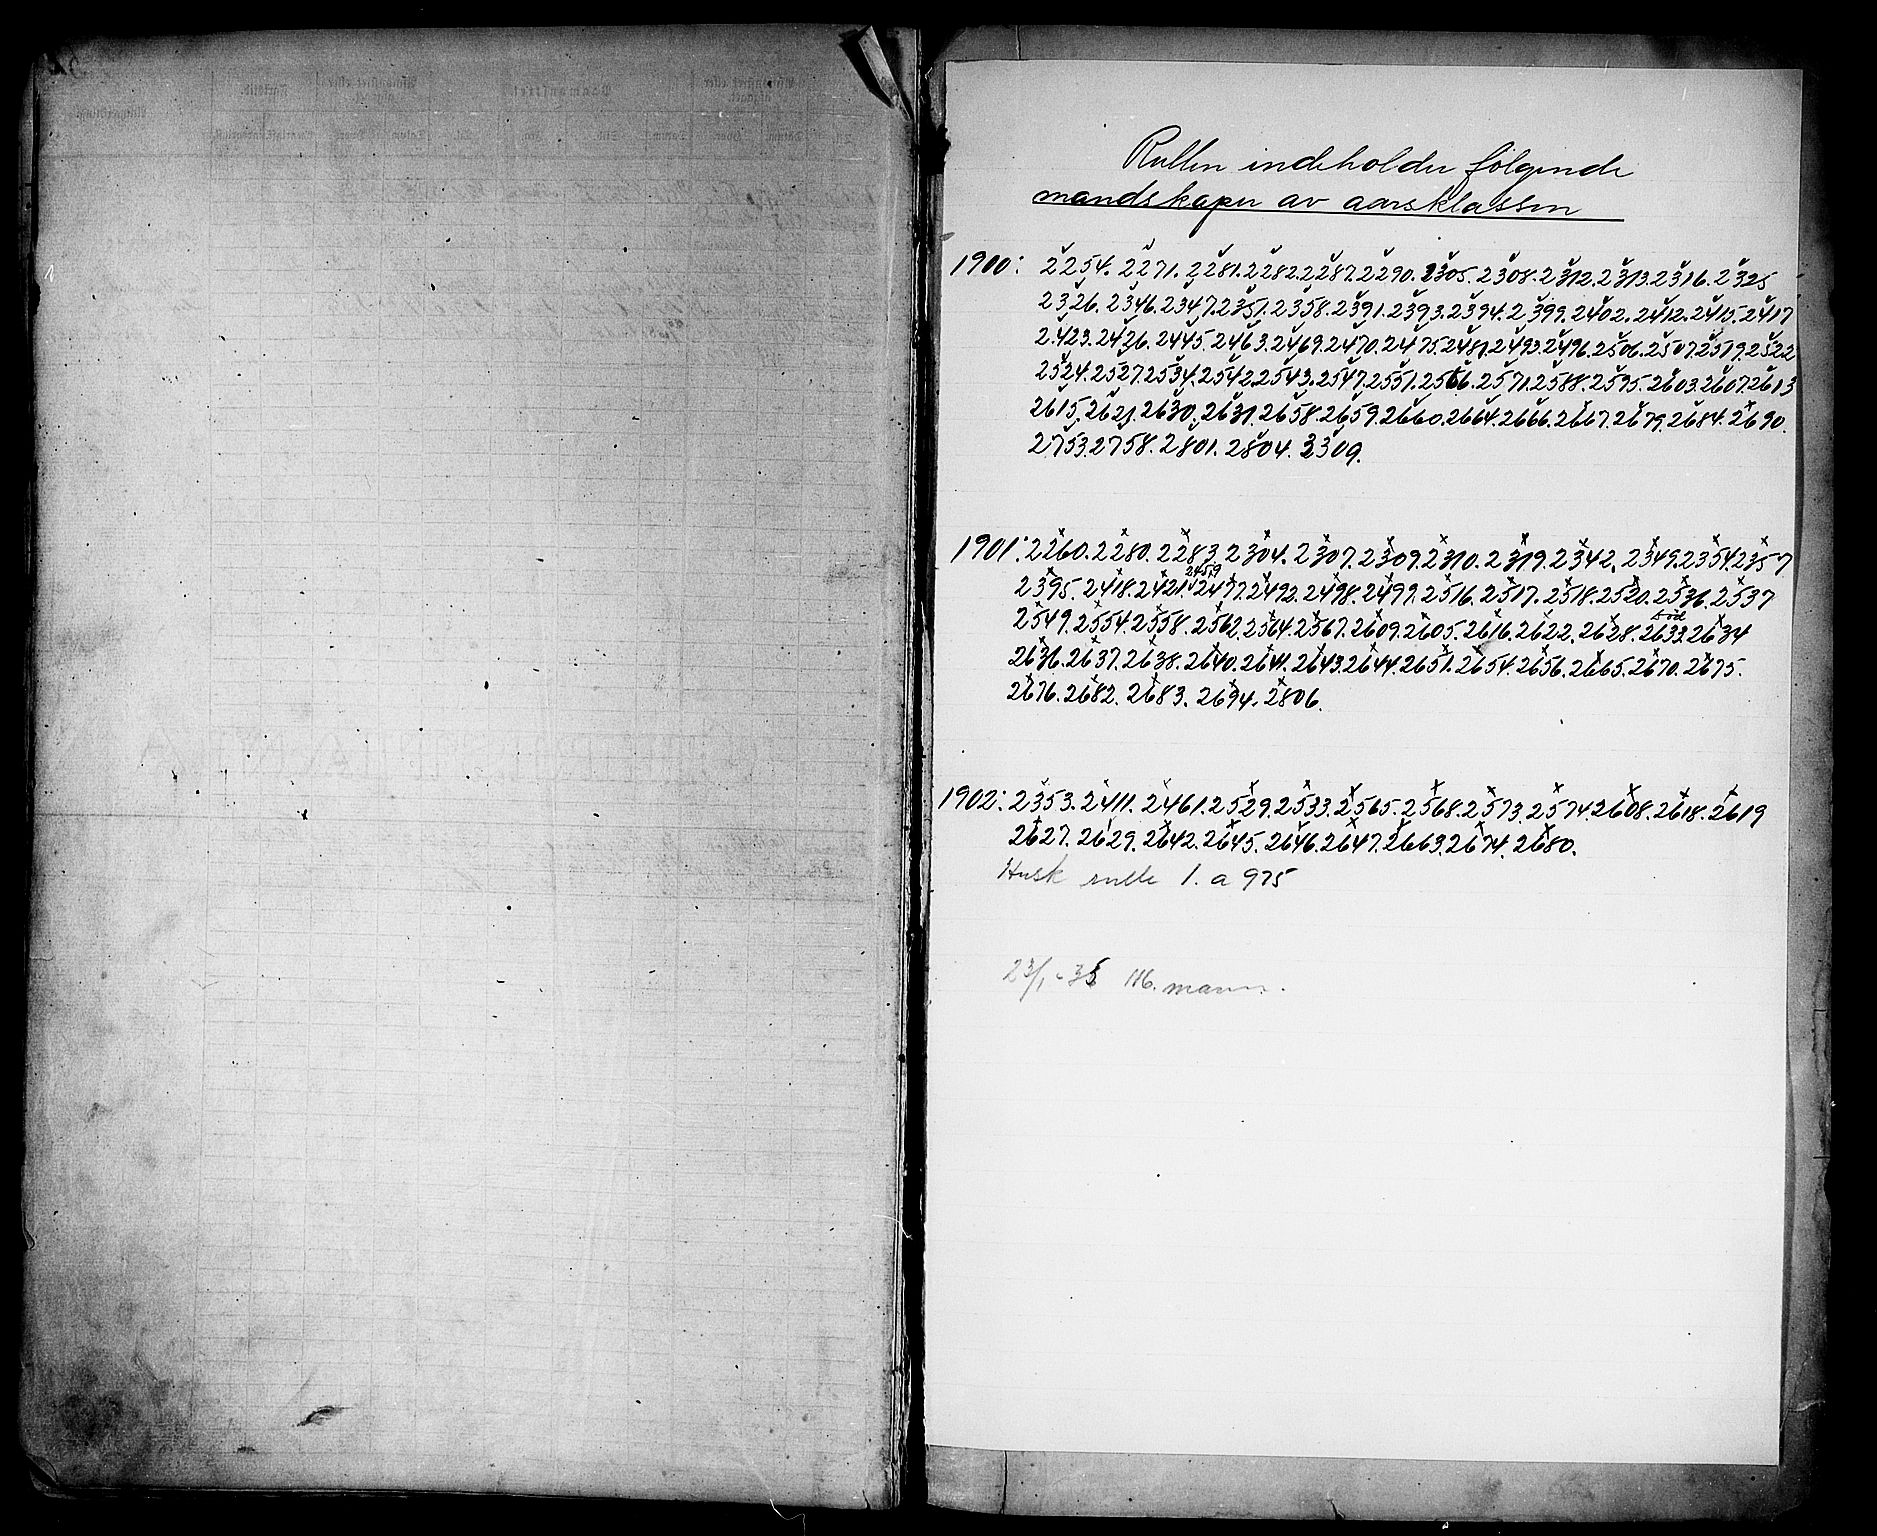 Rullen indeholder følgende
mandskaper av aarsklassen
1900: 2254. 2271. 2281. 2282. 2287. 2290. 2305. 2308. 2312. 2313. 2316. 2325
2326. 2346. 2347. 2351. 2358. 2391. 2393. 2394. 2399. 2402. 2412. 2415. 2417
2423. 2426. 2445. 2463. 2469. 2470. 2475. 2481. 2493. 2496. 2506. 2507. 2519. 2522
2524. 2527. 2534. 2542. 2543. 2547. 2551. 2566. 2571. 2588. 2595. 2603. 2607. 2613
2615. 2621. 2630. 2631. 2658. 2659. 2660. 2664. 2666. 2667. 2679. 2684. 2690.
2753. 2758. 2801. 2804. 3309.
1901: 2260. 2280. 2283. 2304. 2307. 2309. 2310. 2319. 2342. 2349. 2354. 2357
2459
2395. 2418. 2421. 2477. 2492. 2498. 2499. 2516. 2517. 2518. 2520. 2536. 2537
død
2549. 2554. 2558. 2562. 2564. 2567. 2609. 2605. 2616. 2622. 2628. 2633. 2634
2636. 2637. 2638. 2640. 2641. 2643. 2644. 2651. 2654. 2656. 2665. 2670. 2675.
2676. 2682. 2683. 2694. 2806.
1902: 2353. 2411. 2461. 2529. 2533. 2565. 2568. 2573. 2574. 2608. 2618. 2619
2627. 2629. 2642. 2645. 2646. 2647. 2663. 2674. 2680.
Husk rulle 1. a 975
23/1-35 116. mann.